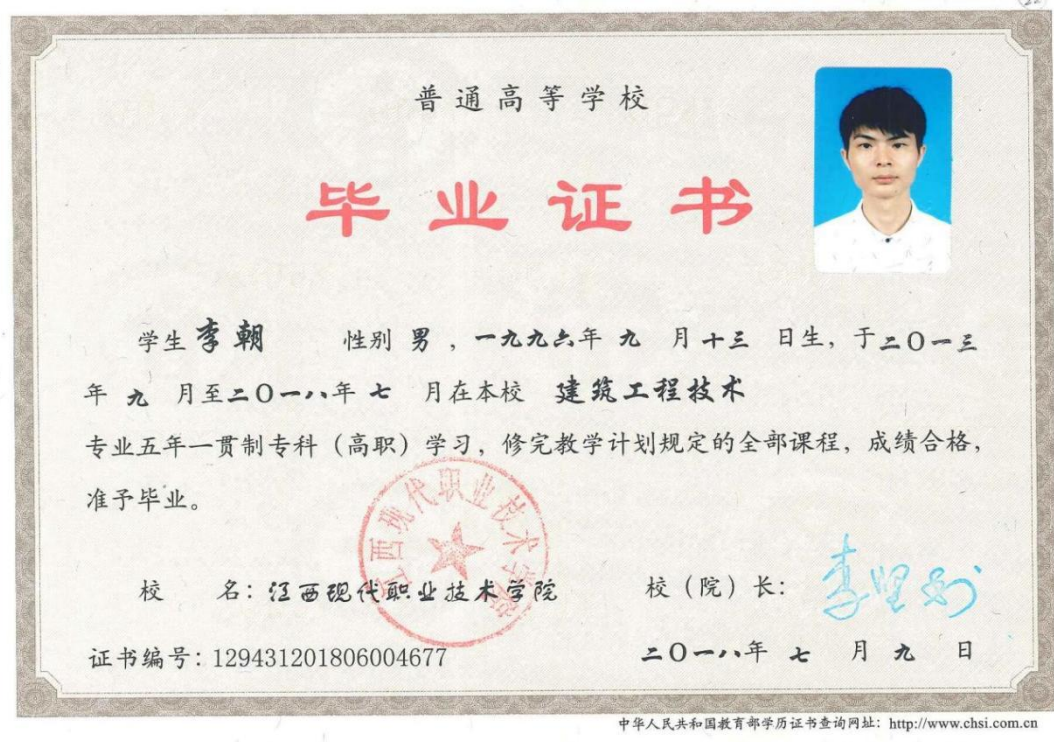 普通高等学校
毕业证书
学生 李朝 性别 男 ，一九九六年 九 月 十三 日生，于二〇一三
年 九 月至二〇一八年 七 月在本校 建筑工程技术
专业五年一贯制专科（高职）学习，修完教学计划规定的全部课程，成绩合格，
准予毕业。
江西现代职业技术学院
校 名：江西现代职业技术学院 校（院）长：
证书编号：129431201806004677 二〇一八年 七 月 九 日
中华人民共和国教育部学历证书查询网址：http://www.chsi.com.cn